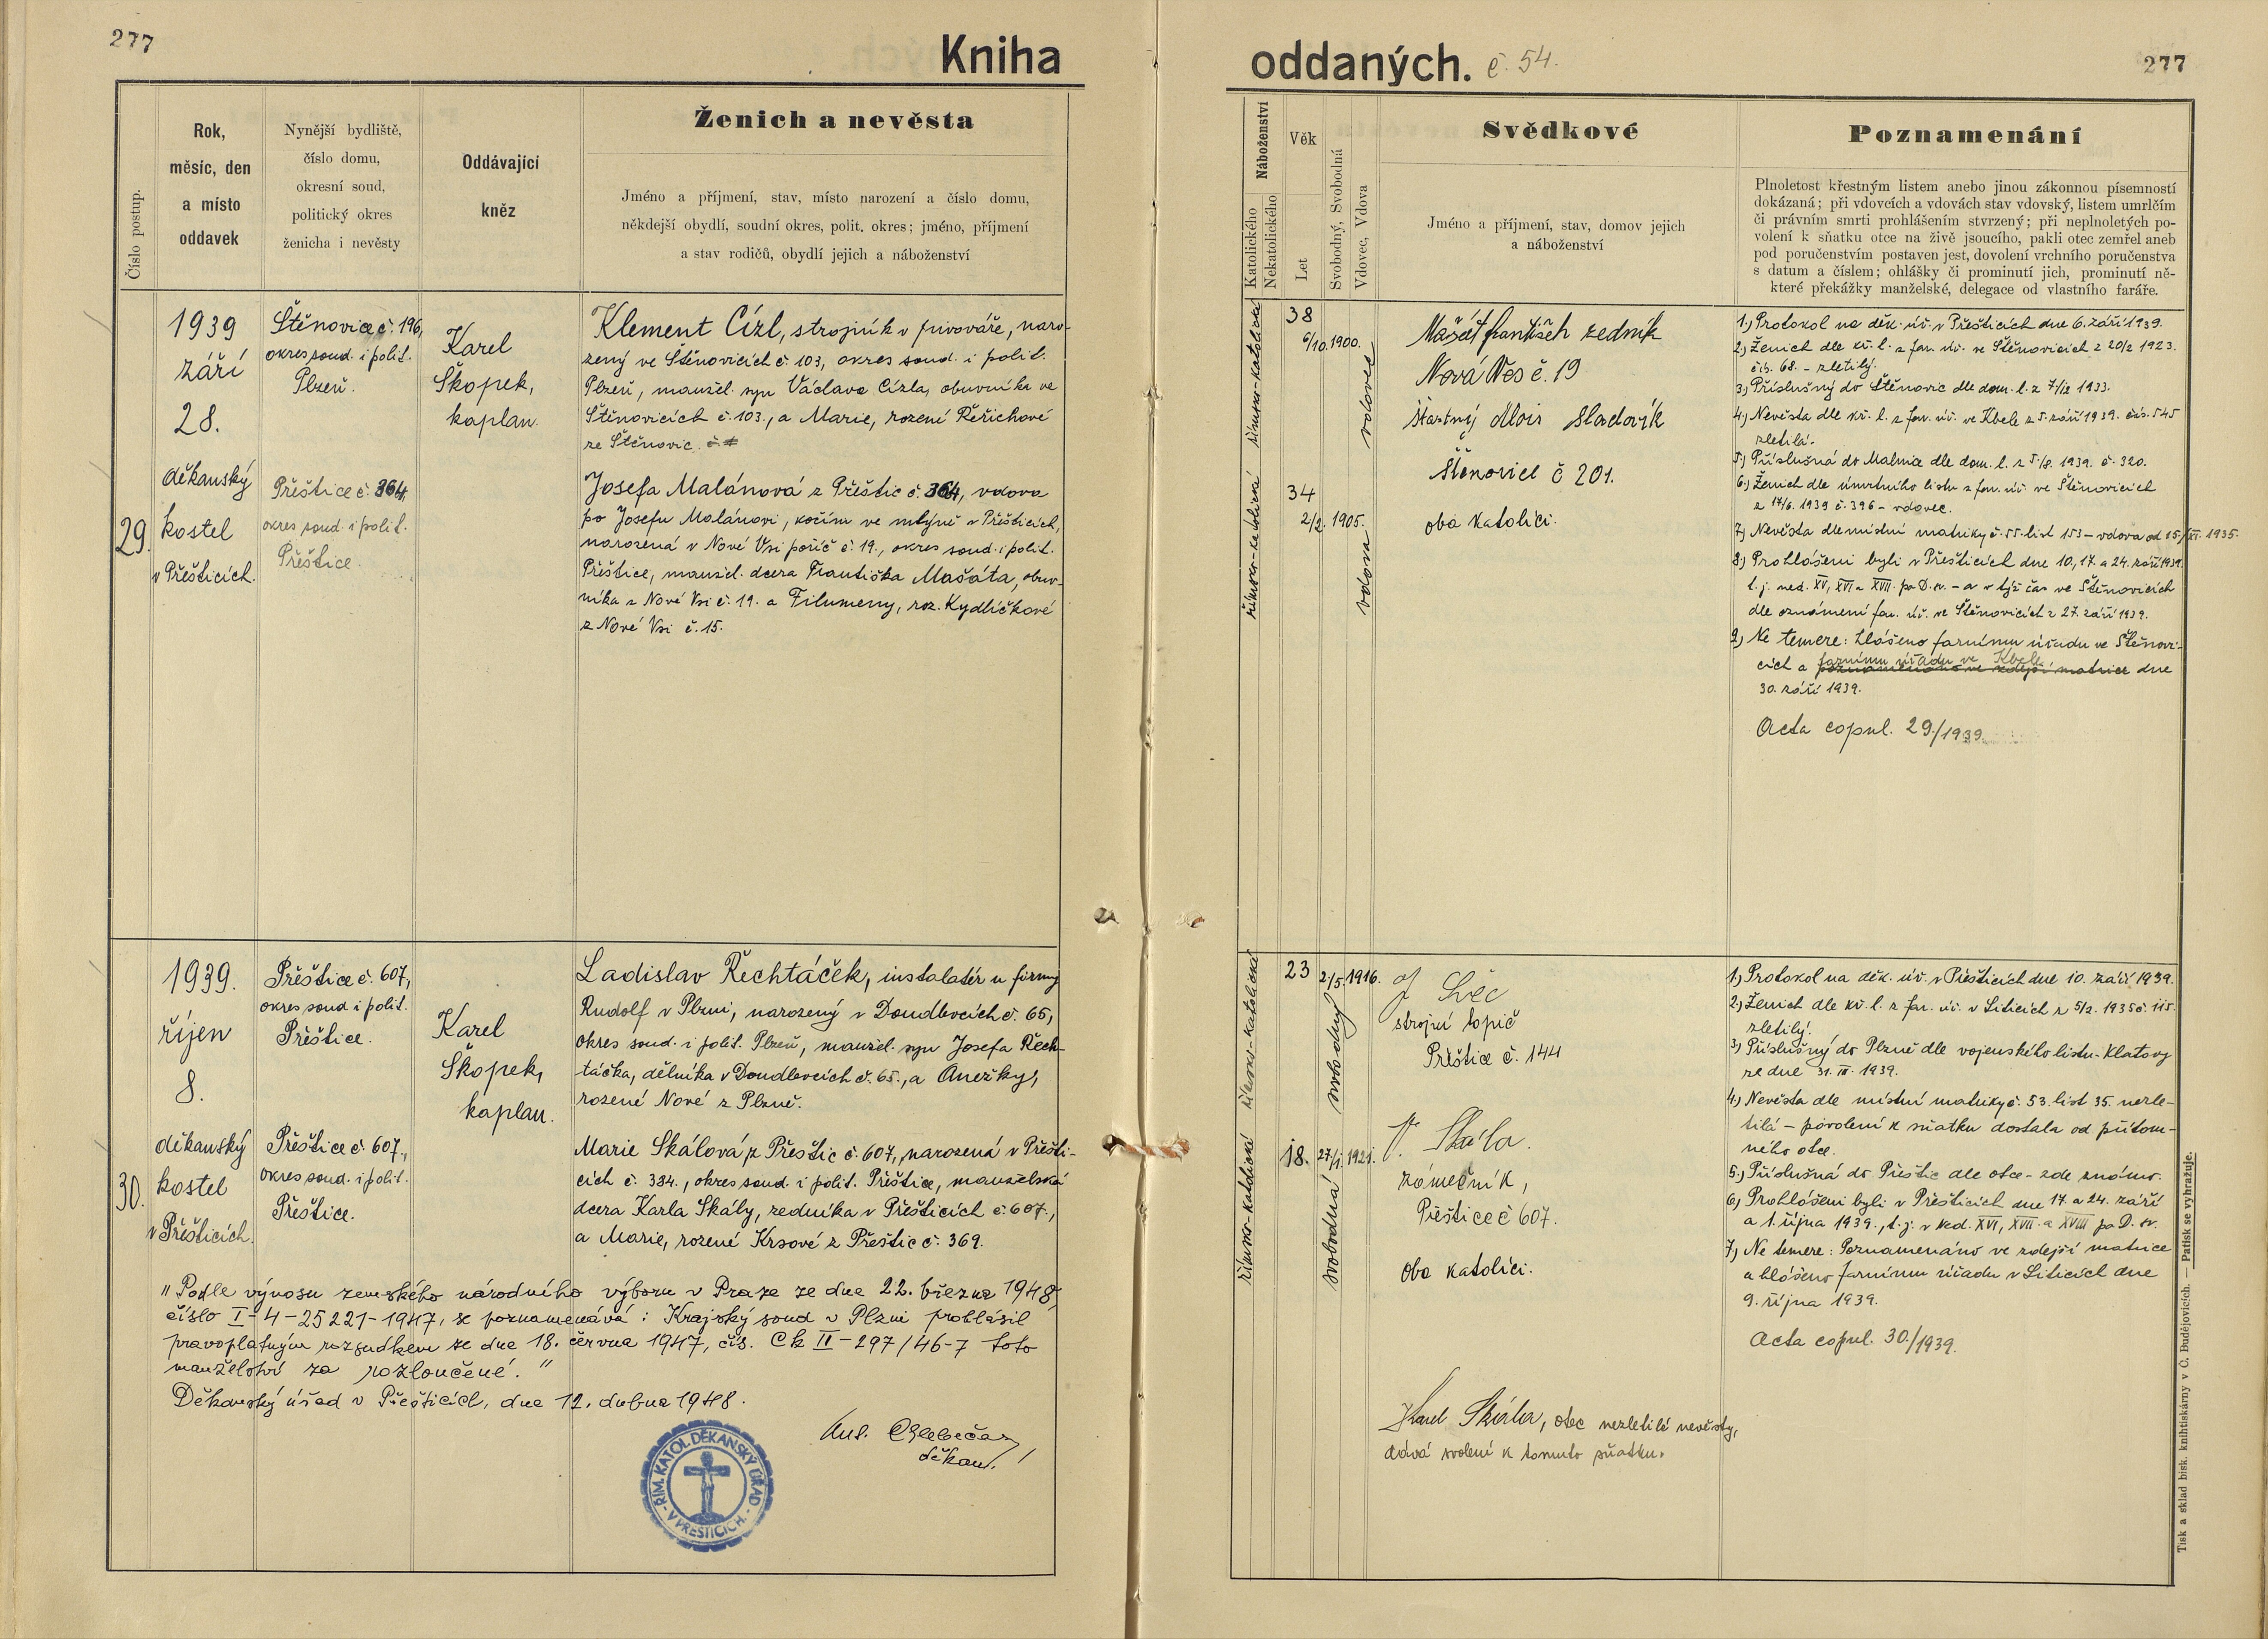 277
Kniha
Číslo postup.
Rok,
měsíc, den
a místo
oddavek
Nynější bydliště,
číslo domu,
okresní soud,
politický okres
ženicha i nevěsty
Oddávající
kněz
Ženich a nevěsta
Jméno a příjmení, stav, místo narození a číslo domu,
někdejší obydlí, soudní okres, polit. okres; jméno, příjmení
a stav rodičů, obydlí jejich a náboženství
29.
1939
září
28.
děkanský
kostel
v Přešticích.
Štěnovice č. 196,
okres soud. i polit.
Plzeň.
Přeštice č. 364,
okres soud. i polit.
Přeštice.
Karel
Škopek,
kaplan.
Klement Cízl, strojník v pivováře, naro-
zený ve Štěnovicích č. 103, okres soud. i polit.
Plzeň, manžel. syn Václava Cízla, obuvníka ve
Štěnovicích č. 103., a Marie, rozené Řeřichové
ze Štěnovic.
Josefa Malánová z Přeštic č. 364, vdova
po Josefu Malánovi, kočím ve mlýně v Přešticích,
narozená v Nové Vsi poříč č. 19., okres soud. i polit.
Přeštice, manžel. dcera Františka Mašáta, obuv-
níka z Nové Vsi č. 19. a Filumeny, roz. Kydlíčkové
z Nové Vsi č. 15.
30.
1939.
říjen
8.
děkanský
kostel
v Přešticích.
Přeštice č. 607,
okres soud i polit.
Přeštice.
Přeštice č. 607.,
okres soud. i polit.
Přeštice.
Karel
Škopek,
kaplan.
Ladislav Řechtáček, instalatér u firmy
Rudolf v Plzni, narozený v Doudlevcích č. 65,
okres soud. i polit. Plzeň, manžel. syn Josefa Řech-
táčka, dělníka v Doudlevcích č. 65., a Anežky,
rozené Nové z Plzně.
Marie Skálová z Přeštic č. 607, narozená v Přešti-
cích č. 384., okres soud. i polit. Přeštice, manželská
dcera Karla Skály, zedníka v Přešticích č. 607.,
a Marie, rozené Krsové z Přeštic č. 369.
"Podle výnosu zemského národního výboru v Praze ze dne 22. března 1948,
číslo I-4-25221-1947, se poznamenává: Krajský soud v Plzni prohlásil
pravoplatným rozsudkem ze dne 18. června 1947, čís. Ck II-297/46-7 toto
manželství za rozloučené."
Děkanský úřad v Přešticích, dne 12. dubna 1948.
děkan.
ŘÍM. KATOL. DĚKANSKÝ ÚŘAD
V PŘEŠTICÍCH.
oddaných. č. 54.
277
Náboženství
Katolického
Nekatolického
Věk
Let
Svobodný, Svobodná
Vdovec, Vdova
Svědkové
Jméno a příjmení, stav, domov jejich
a náboženství
Poznamenání
Plnoletost křestným listem anebo jinou zákonnou písemností
dokázaná; při vdovcích a vdovách stav vdovský, listem umrlčím
či právním smrti prohlášením stvrzený; při neplnoletých po-
volení k sňatku otce na živě jsoucího, pakli otec zemřel aneb
pod poručenstvím postaven jest, dovolení vrchního poručenstva
s datum a číslem; ohlášky či prominutí jich, prominutí ně-
které překážky manželské, delegace od vlastního faráře.
římsko-katolické
38
6/10. 1900.
vdovec
římsko-katolická
34
2/2. 1905.
vdova
Mašát František zedník
Nová Ves č. 19
Šťastný Alois sladovík
Štěnovice č 201.
oba katolíci.
1.) Protokol na děk. úř. v Přešticích dne 6. září 1939.
2.) Ženich dle kř. l. z far. úř. ve Štěnovicích z 20/2 1923.
čís. 68. - zletilý.
3.) Příslušný do Štěnovic dle dom. l. z 7/12 1933.
4.) Nevěsta dle kř. l. z far. úř. ve Kbele z 5. září 1939. čís. 545
zletilá.
5.) Příslušná do Malnice dle dom. l. z 5./8. 1939. č. 320.
6.) Ženich dle úmrtního listu z far. úř. ve Štěnovicích
z 17/6. 1939 č. 396 - vdovec.
7.) Nevěsta dle místní matriky č. 55. list 153 - vdova od 15./XI. 1935.
8.) Prohlášeni byli v Přešticích dne 10., 17. a 24. září 1939.
t. j. ned. XV, XVI a XVII. po D. sv. - a v týž čas ve Štěnovicích
dle oznámení far. úř. ve Štěnovicích z 27. září 1939.
9.) Ne temere: hlášeno farnímu úřadu ve Štěnovi-
cích a farnímu úřadu ve Kbele
poznamenáno ve zdejší matrice dne
30. září 1939.
Acta copul. 29./1939.
římsko-katolické
23
2/5. 1916.
svobodný
římsko-katolická
18.
27/1. 1921.
svobodná
J. Švec
strojní topič
Přeštice č. 144
Skála.
zámečník,
Přeštice č 607.
oba katolíci.
Karel Skála, otec nezletilé nevěsty,
dává svolení k tomuto sňatku.
1.) Protokol na děk. úř. v Přešticích dne 10. září 1939.
2.) Ženich dle kř. l. z far. úř. v Liticích z 5/2. 1935 č. 115.
zletilý.
3.) Příslušný do Plzně dle vojenského listu - Klatovy
ze dne 31. III. 1939.
4.) Nevěsta dle místní matriky č. 53. list 35. nezle-
tilá - povolení k sňatku dostala od přítom-
ného otce.
5.) Příslušná do Přeštic dle otce - zde známo.
6.) Prohlášeni byli v Přešticích dne 17. a 24. září
a 1. října 1939., t. j. v ned. XVI, XVII. a XVIII po D. sv.
7.) Ne temere: Poznamenáno ve zdejší matrice
a hlášeno farnímu úřadu v Liticích dne
9. října 1939.
Acta copul. 30./1939.
Tisk a sklad bisk. knihtiskárny v Č. Budějovicích. — Patisk se vyhražuje.